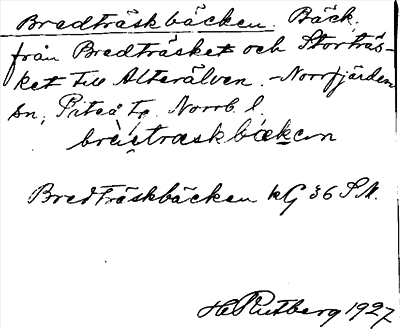 Bredträskbäcken. Bäck
från Bredträsket och Storträs-
ket till Alterälven. - Norrfjärden
sn, Piteå tg. Norrb. l.
Bredträskbäcken kG 36 S.N.
H. Rutberg 1927